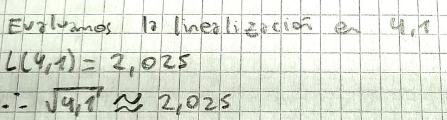 Evaluamos la linealización en 4,1
L(4,1) = 2,025
∴ √4,1 ≈ 2,025